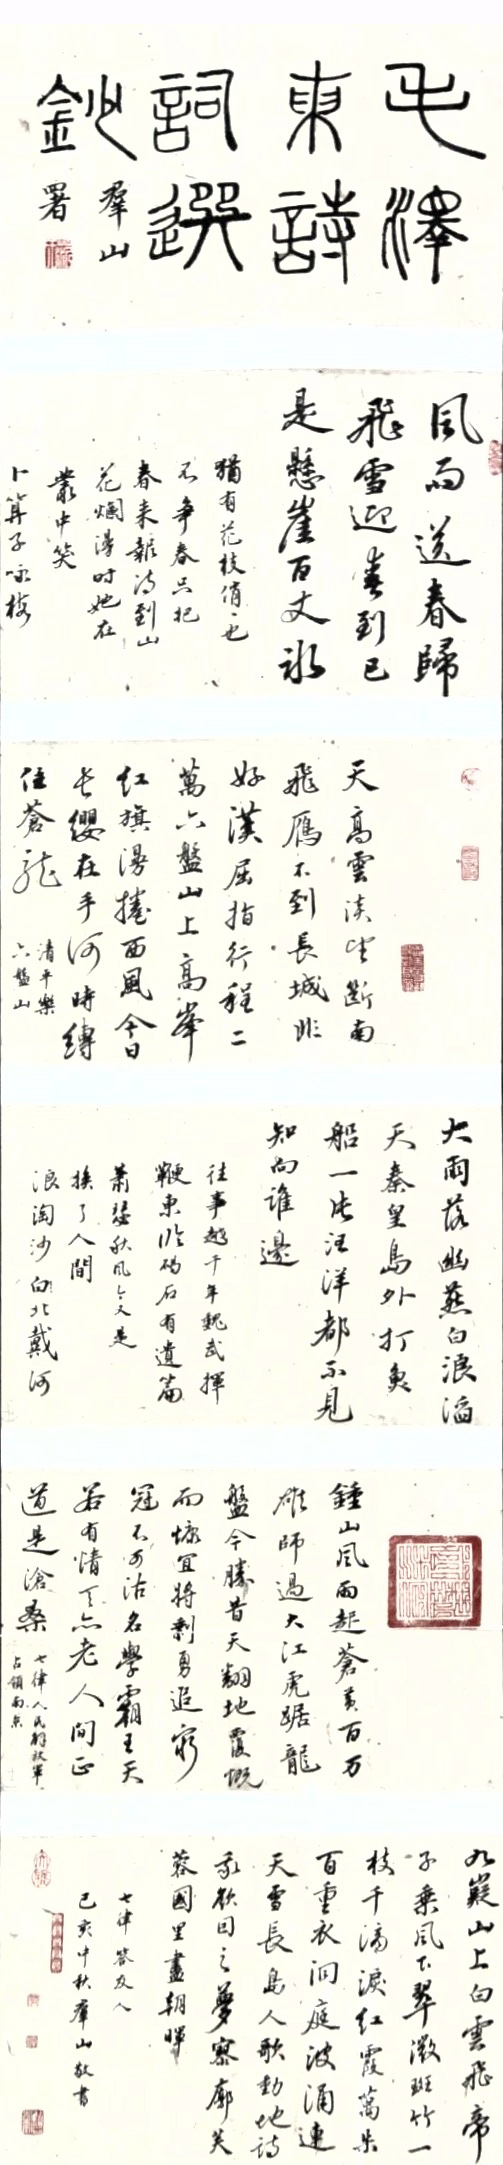 毛澤
東詩
詞選
鈔
羣山
署
風雨送春歸
飛雪迎春到已
是懸崖百丈冰
猶有花枝俏俏也
不爭春只把
春來報待到山
花爛漫時她在
叢中笑
卜算子咏梅
天高雲淡望斷南
飛雁不到長城非
好漢屈指行程二
萬六盤山上高峰
紅旗漫捲西風今日
長纓在手何時縛
住蒼龍
清平樂
六盤山
大雨落幽燕白浪滔
天秦皇島外打魚
船一片汪洋都不見
知向誰邊
往事越千年魏武揮
鞭東臨碣石有遺篇
蕭瑟秋風今又是
換了人間
浪淘沙向北戴河
鍾山風雨起蒼黃百万
雄師過大江虎踞龍
盤今勝昔天翻地覆慨
而慷宜將剩勇追窮
冠不可沽名學霸王天
若有情天亦老人間正
道是滄桑
七律人民解放軍
占領南京
九嶷山上白雲飛帝
子乘風下翠微斑竹一
枝千滴淚紅霞萬朵
百重衣洞庭波涌連
天雪長島人歌動地詩
我欲因之夢寥廓芙
蓉國里盡朝暉
七律答友人
己亥中秋羣山敬書